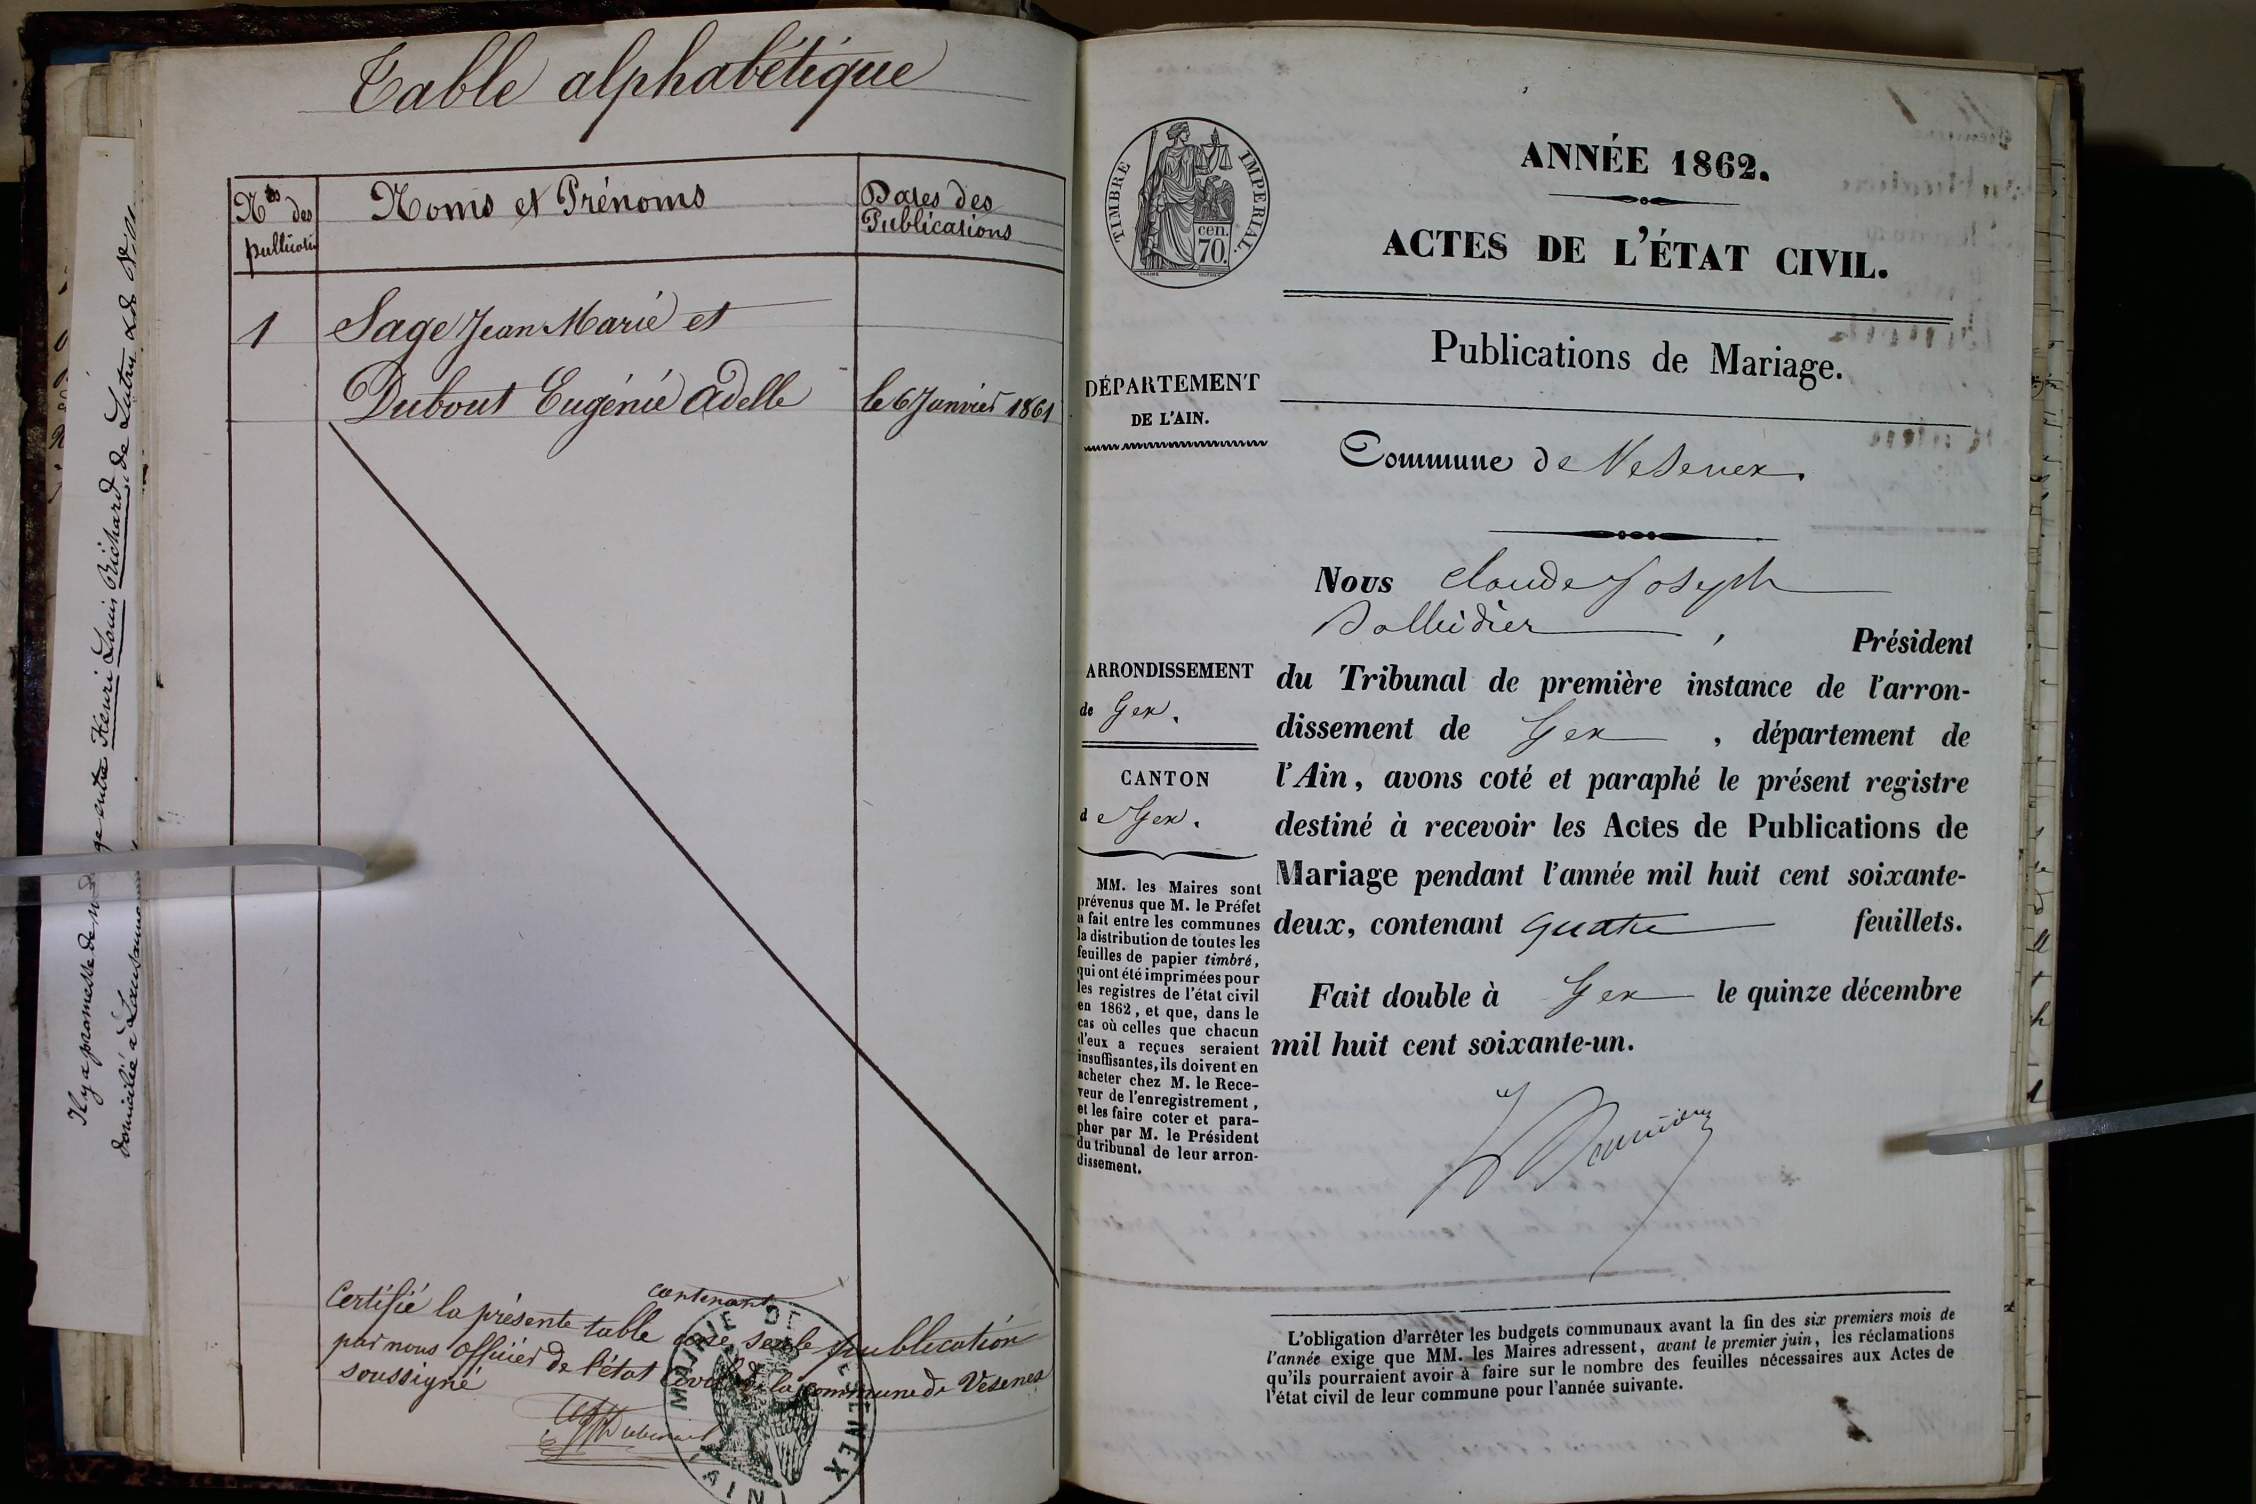 Table alphabétique
Nos des
publication
Noms et Prénoms
Dates des
Publications
1
Sage Jean Marie et
Dubout Eugénie Adelle
le 6 Janvier 1861
Certifié la présente table contenant une seule publication
par nous Officier de l'état Civil de la commune de Vesenex
soussigné
MAIRIE DE VESENEX
(AIN)
Il y a promesse de mariage entre Henri Louis Richard de
domicilié à Lausanne
TIMBRE IMPERIAL.
cen.
70.
ANNÉE 1862.
ACTES DE L'ÉTAT CIVIL.
Publications de Mariage.
DÉPARTEMENT
DE L'AIN.
Commune de Vesenex.
ARRONDISSEMENT
de Gex.
CANTON
de Gex.
MM. les Maires sont
prévenus que M. le Préfet
a fait entre les communes
la distribution de toutes les
feuilles de papier timbré,
qui ont été imprimées pour
les registres de l'état civil
en 1862, et que, dans le
cas où celles que chacun
d'eux a reçues seraient
insuffisantes, ils doivent en
acheter chez M. le Rece-
veur de l'enregistrement,
et les faire coter et para-
pher par M. le Président
du tribunal de leur arron-
dissement.
Nous Claude Joseph
, Président
du Tribunal de première instance de l'arron-
dissement de Gex , département de
l'Ain, avons coté et paraphé le présent registre
destiné à recevoir les Actes de Publications de
Mariage pendant l'année mil huit cent soixante-
deux, contenant quatre feuillets.
Fait double à Gex le quinze décembre
mil huit cent soixante-un.
L'obligation d'arrêter les budgets communaux avant la fin des six premiers mois de
l'année exige que MM. les Maires adressent, avant le premier juin, les réclamations
qu'ils pourraient avoir à faire sur le nombre des feuilles nécessaires aux Actes de
l'état civil de leur commune pour l'année suivante.